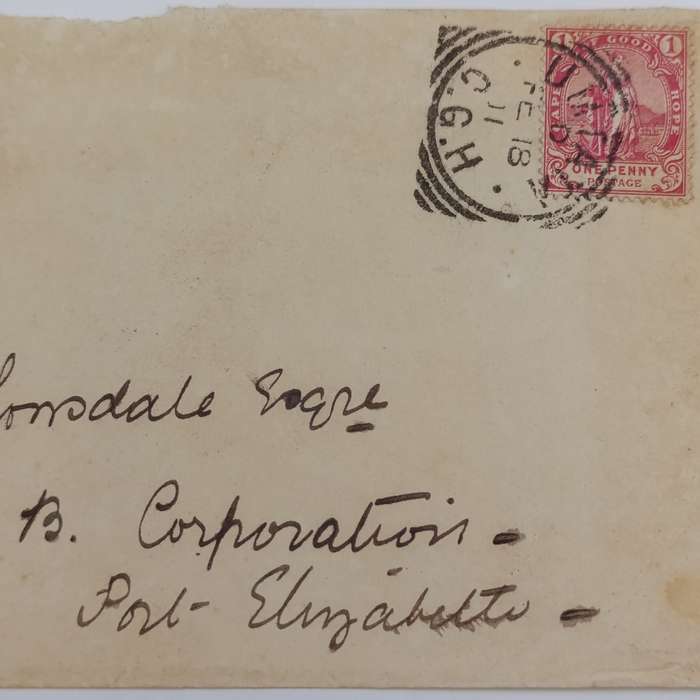 1 OF GOOD 1
CAPE HOPE
ONE PENNY
POSTAGE
C.G.H.
FE 18
01
Lonsdale Esqre
B. Corporation -
Port- Elizabeth -